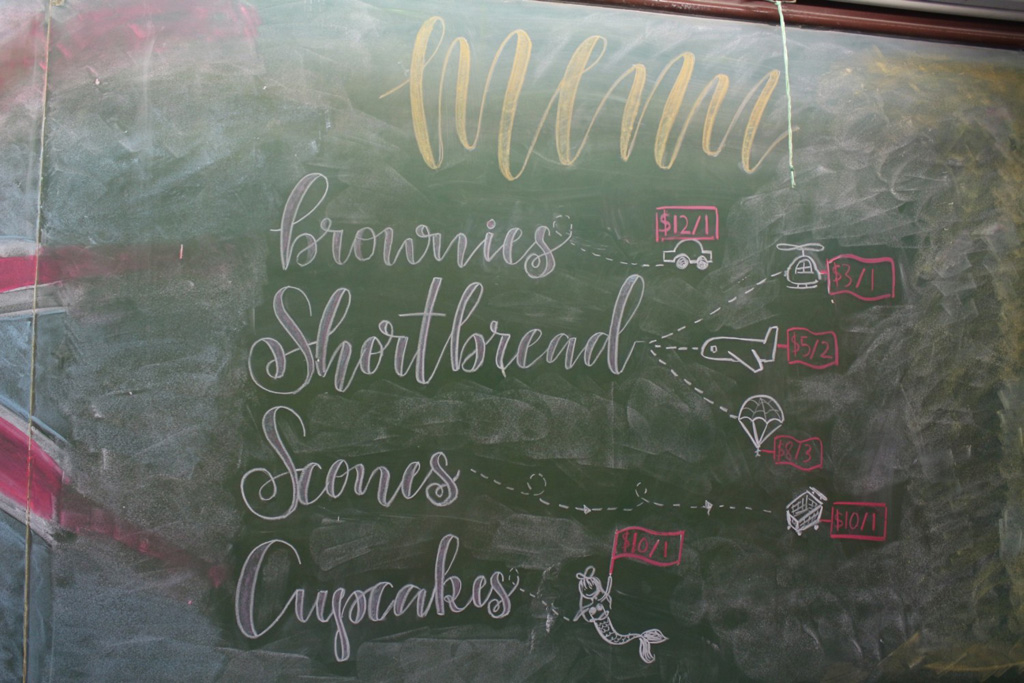 menu
brownies $12/1
$3/1
Shortbread $5/2
$8/3
Scones $10/1
Cupcakes $10/1